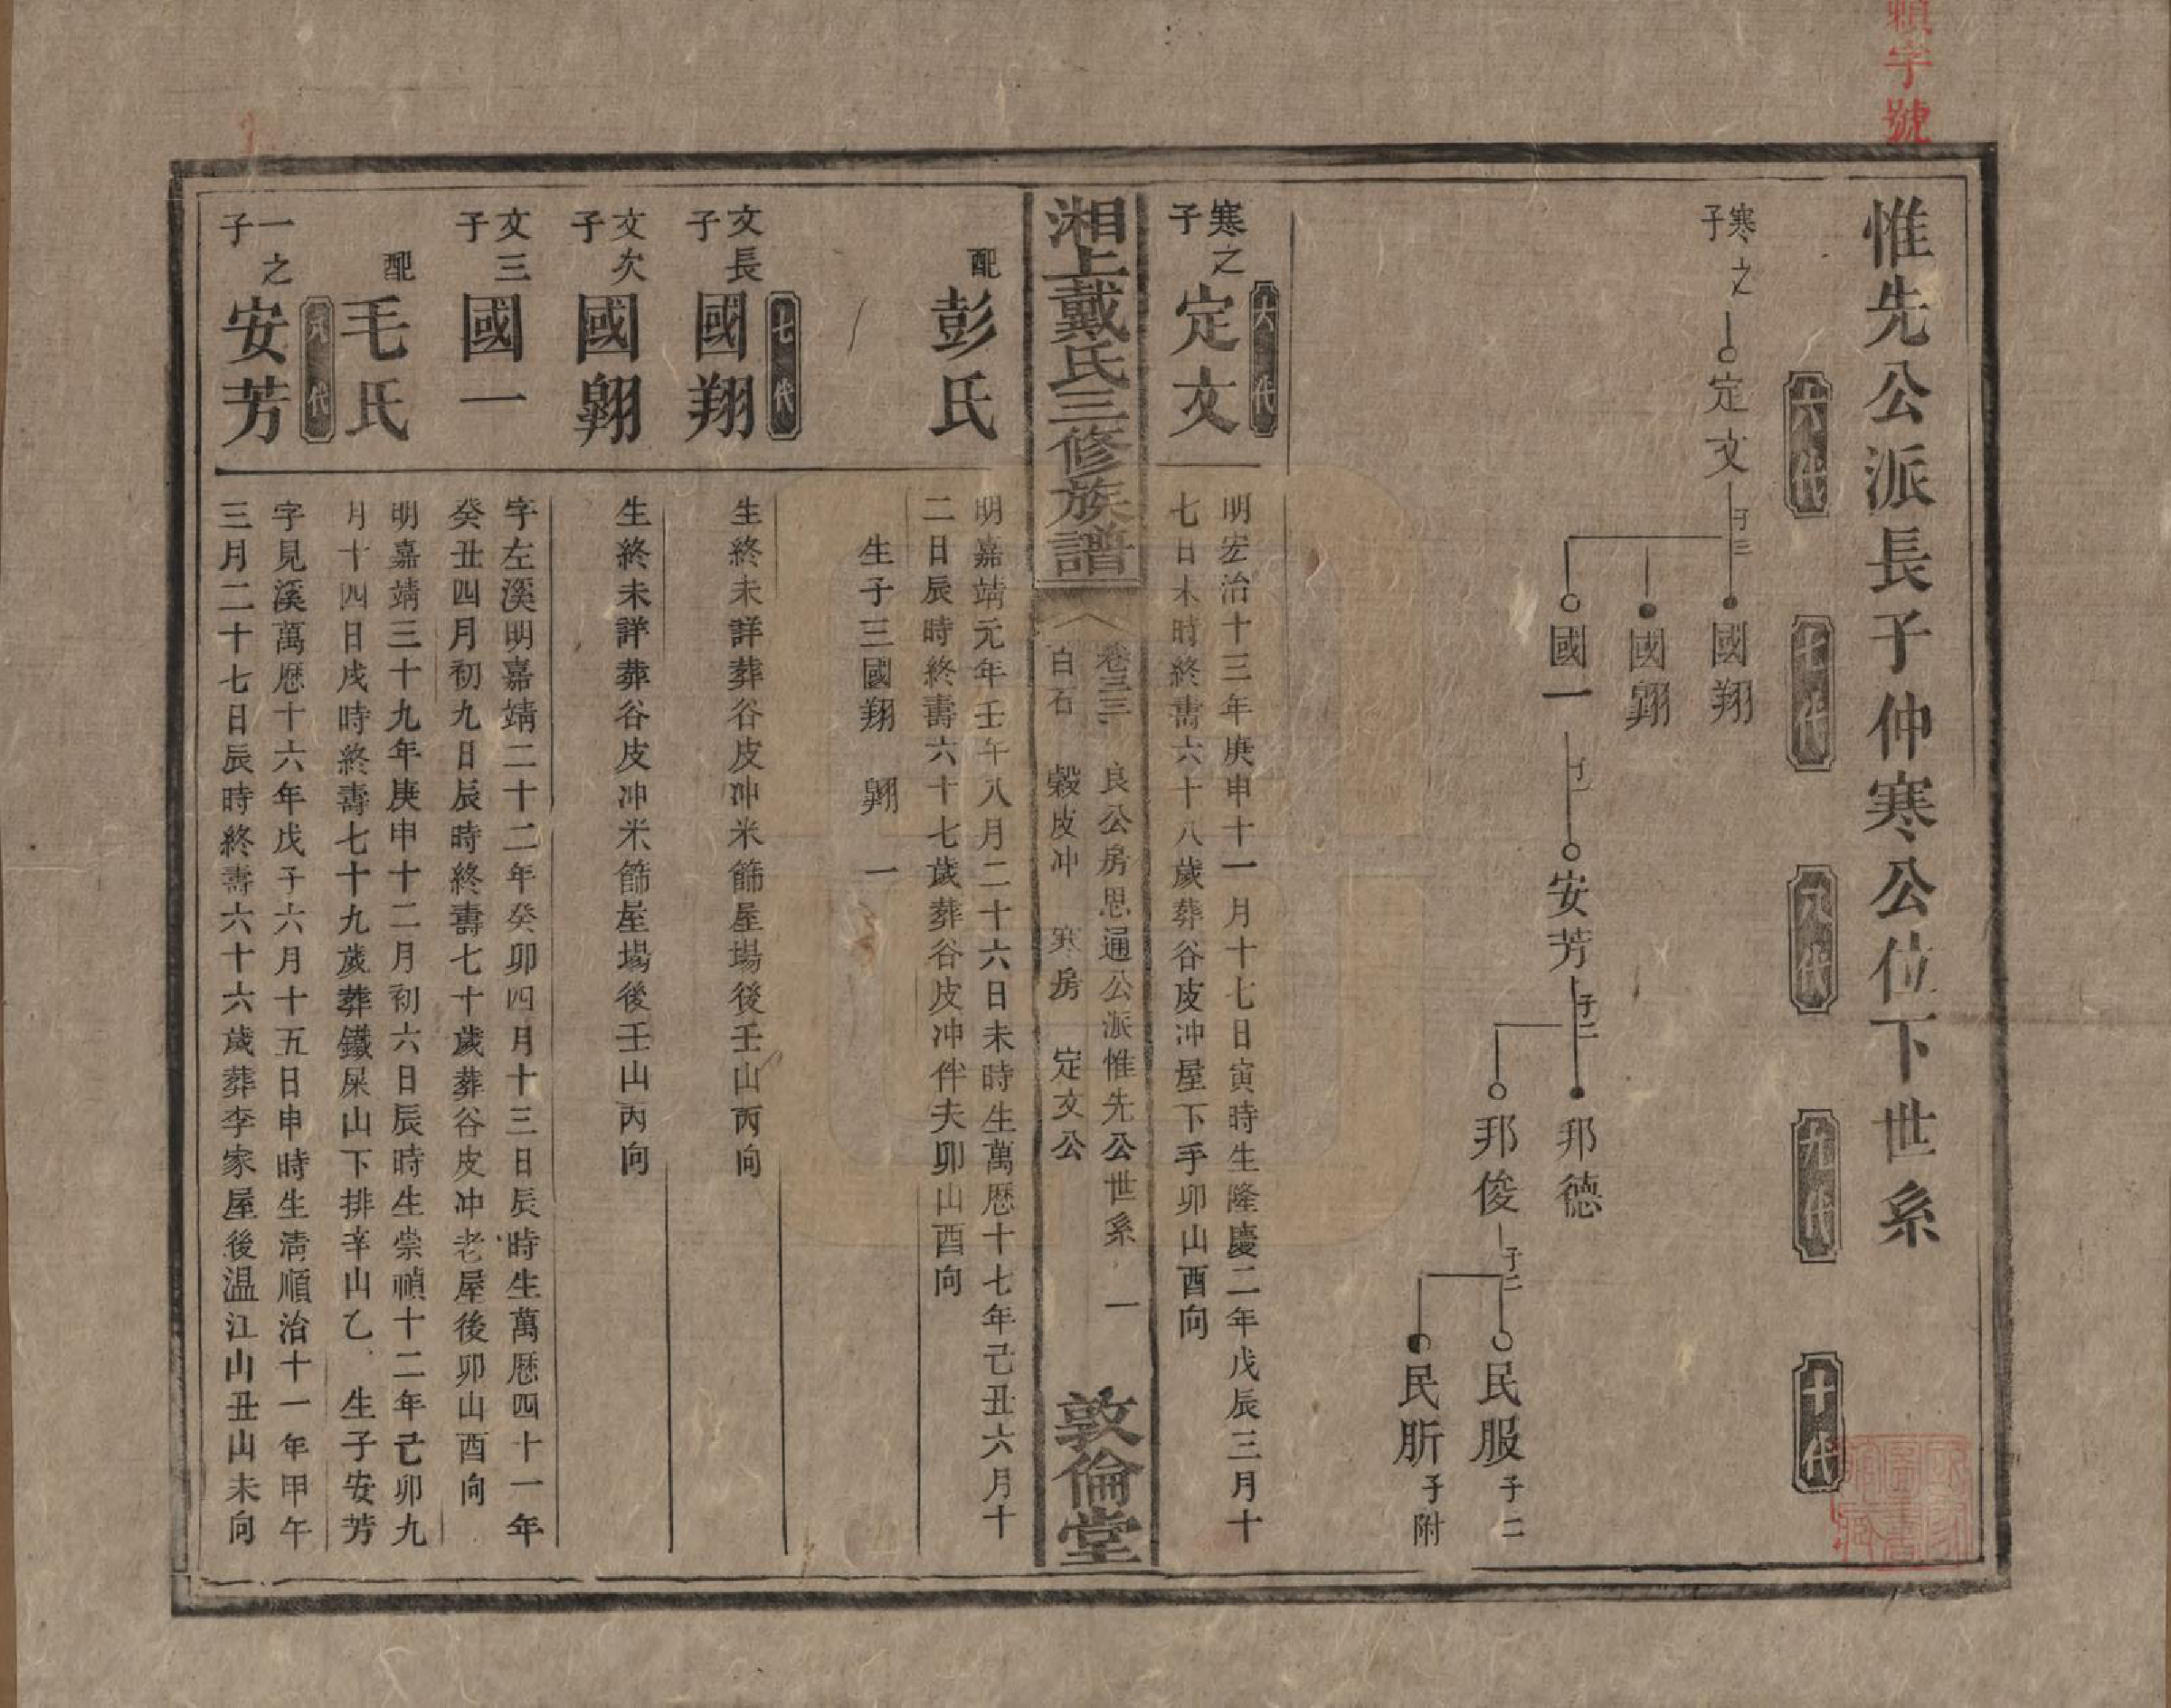 賴字號
惟先公派長子仲寒公位下世系
六代
七代
八代
九代
十代
寒之子
定文
子三
國翔
國翶
國一
子一
安芳
子二
邦德
邦俊
子二
民服 子二
民肵 子附
六代
寒之子 定文
明宏治十三年庚申十一月十七日寅時生隆慶二年戊辰三月十
七日未時終壽六十八歲葬谷皮冲屋下手卯山酉向
湘上戴氏三修族譜
卷三三 良公房思通公派惟先公世系 一
白石 穀皮冲 寒房 定文公
敦倫堂
配 彭氏
明嘉靖元年壬午八月二十六日未時生萬歷十七年己丑六月十
二日辰時終壽六十七歲葬谷皮冲伴夫卯山酉向
生子三國翔 翶 一
七代
文長子 國翔
生終未詳葬谷皮冲米篩屋場後壬山丙向
文次子 國翶
生終未詳葬谷皮冲米篩屋場後壬山丙向
文三子 國一
字左溪明嘉靖二十二年癸卯四月十三日辰時生萬歷四十一年
癸丑四月初九日辰時終壽七十歲葬谷皮冲老屋後卯山酉向
配 毛氏
明嘉靖三十九年庚申十二月初六日辰時生崇禎十二年己卯九
月十四日戌時終壽七十九歲葬鐵屎山下排辛山乙 生子安芳
八代
一之子 安芳
字見溪萬歷十六年戊子六月十五日申時生淸順治十一年甲午
三月二十七日辰時終壽六十六歲葬李家屋後温江山丑山未向